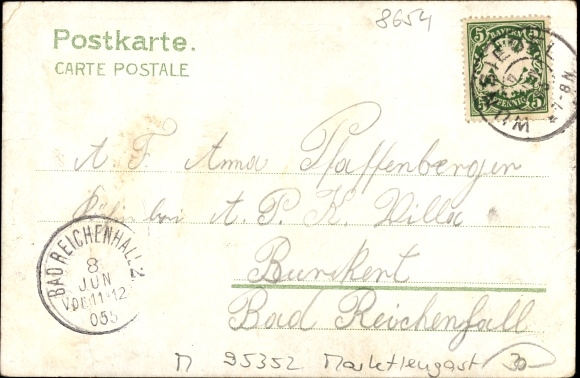 8654
Postkarte.
CARTE POSTALE
BAYERN
5 5
PFENNIG
A. F. Anna Pfaffenberger
bei A. P. K. Villa
Burkert
Bad Reichenhall
BAD REICHENHALL 2
8
JUN
VOR 11-12
05
95352 Marktleugast 30